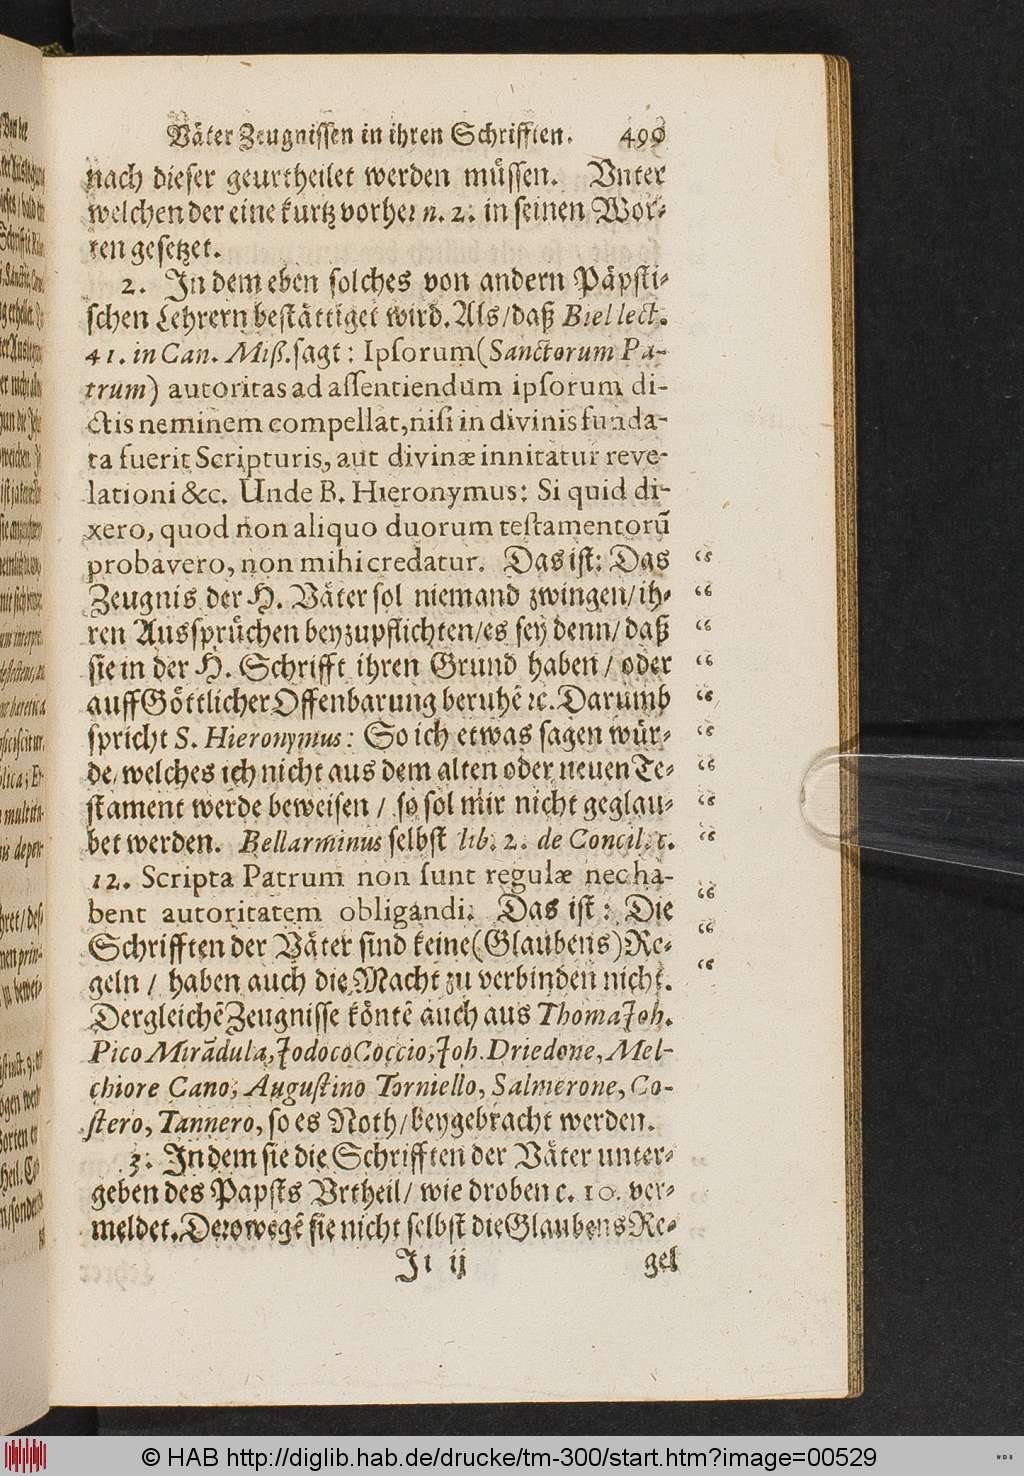 Väter Zeugnissen in ihren Schrifften. 499
nach dieser geurtheilet werden müssen. Vnter
welchen der eine kurtz vorher n. 2. in seinen Wor-
ten gesetzet.
2. In dem eben solches von andern Päpsti-
schen Lehrern bestättiget wird. Als/daß Biel lect.
41. in Can. Miß. sagt: Ipsorum (Sanctorum Pa-
trum) autoritas ad assentiendum ipsorum di-
ctis neminem compellat, nisi in divinis funda-
ta fuerit Scripturis, aut divinæ innitatur reve-
lationi &c. Unde B. Hieronymus: Si quid di-
xero, quod non aliquo duorum testamentorũ
probavero, non mihi credatur. Das ist: Das
Zeugnis der H. Väter sol niemand zwingen/ih-
ren Aussprüchen beyzupflichten/es sey denn/daß
sie in der H. Schrifft ihren Grund haben/oder
auff Göttlicher Offenbarung beruhẽ ꝛc. Darumb
spricht S. Hieronymus: So ich etwas sagen wür-
de, welches ich nicht aus dem alten oder neuen Te-
stament werde beweisen/so sol mir nicht geglau-
bet werden. Bellarminus selbst lib. 2. de Concil. c.
12. Scripta Patrum non sunt regulæ nec ha-
bent autoritatem obligandi. Das ist: Die
Schrifften der Väter sind keine (Glaubens) Re-
geln/haben auch die Macht zu verbinden nicht.
Dergleichẽ Zeugnisse köntẽ auch aus Thoma Joh.
Pico Mirãdula, Jodoco Coccio, Joh. Driedone, Mel-
chiore Cano, Augustino Torniello, Salmerone, Co-
stero, Tannero, so es Noth/beygebracht werden.
3. In dem sie die Schrifften der Väter unter-
geben des Papsts Vrtheil/wie droben c. 10. ver-
meldet. Derowegẽ sie nicht selbst die Glaubens Re-
Ji ij gel
© HAB http://diglib.hab.de/drucke/tm-300/start.htm?image=00529